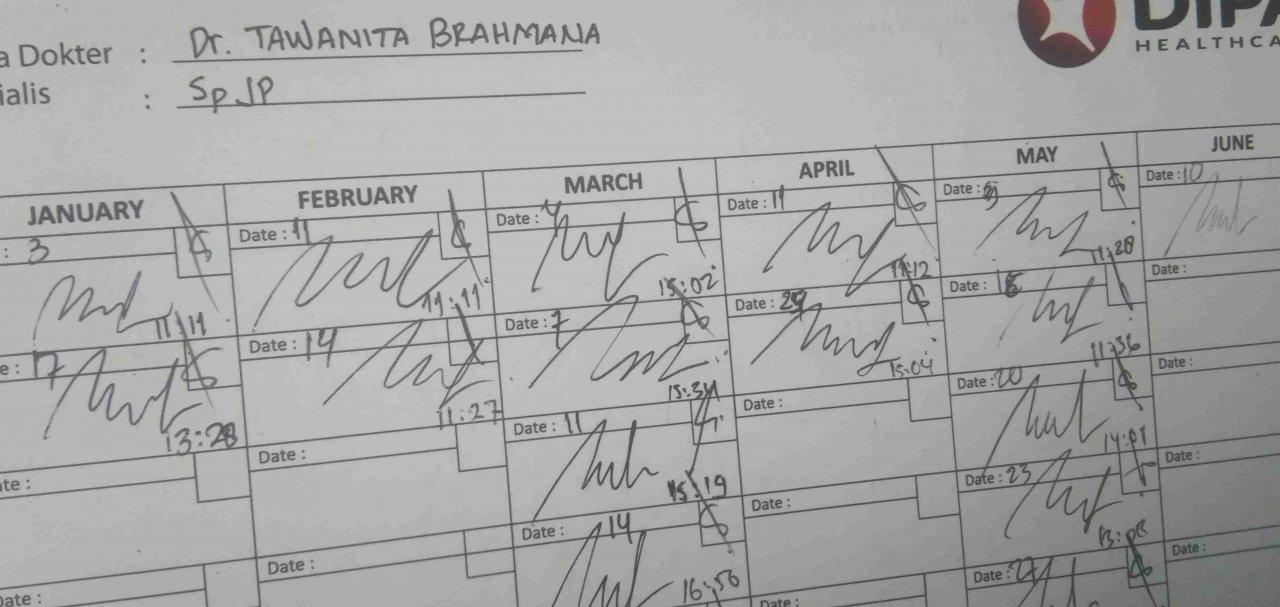 a Dokter : Dr. TAWANITA BRAHMANA
ialis : Sp JP
DIPA
HEALTHCA
JANUARY FEBRUARY MARCH APRIL MAY JUNE
: 3 Date : 11 Date : 4 Date : 11 Date : Date : 10
11:11 11:11 15:02 11:12 11:28
e: 17 Date : 14 Date : 7 Date : 29 Date : Date :
13:28 11:27 15:34 15:04 11:36
ate : Date : Date : 11 Date : Date : 20 Date :
15:19 14:01
Date : Date : 14 Date : Date : 23 Date :
16:50 13:08
ate : Date : Date : 27 Date :